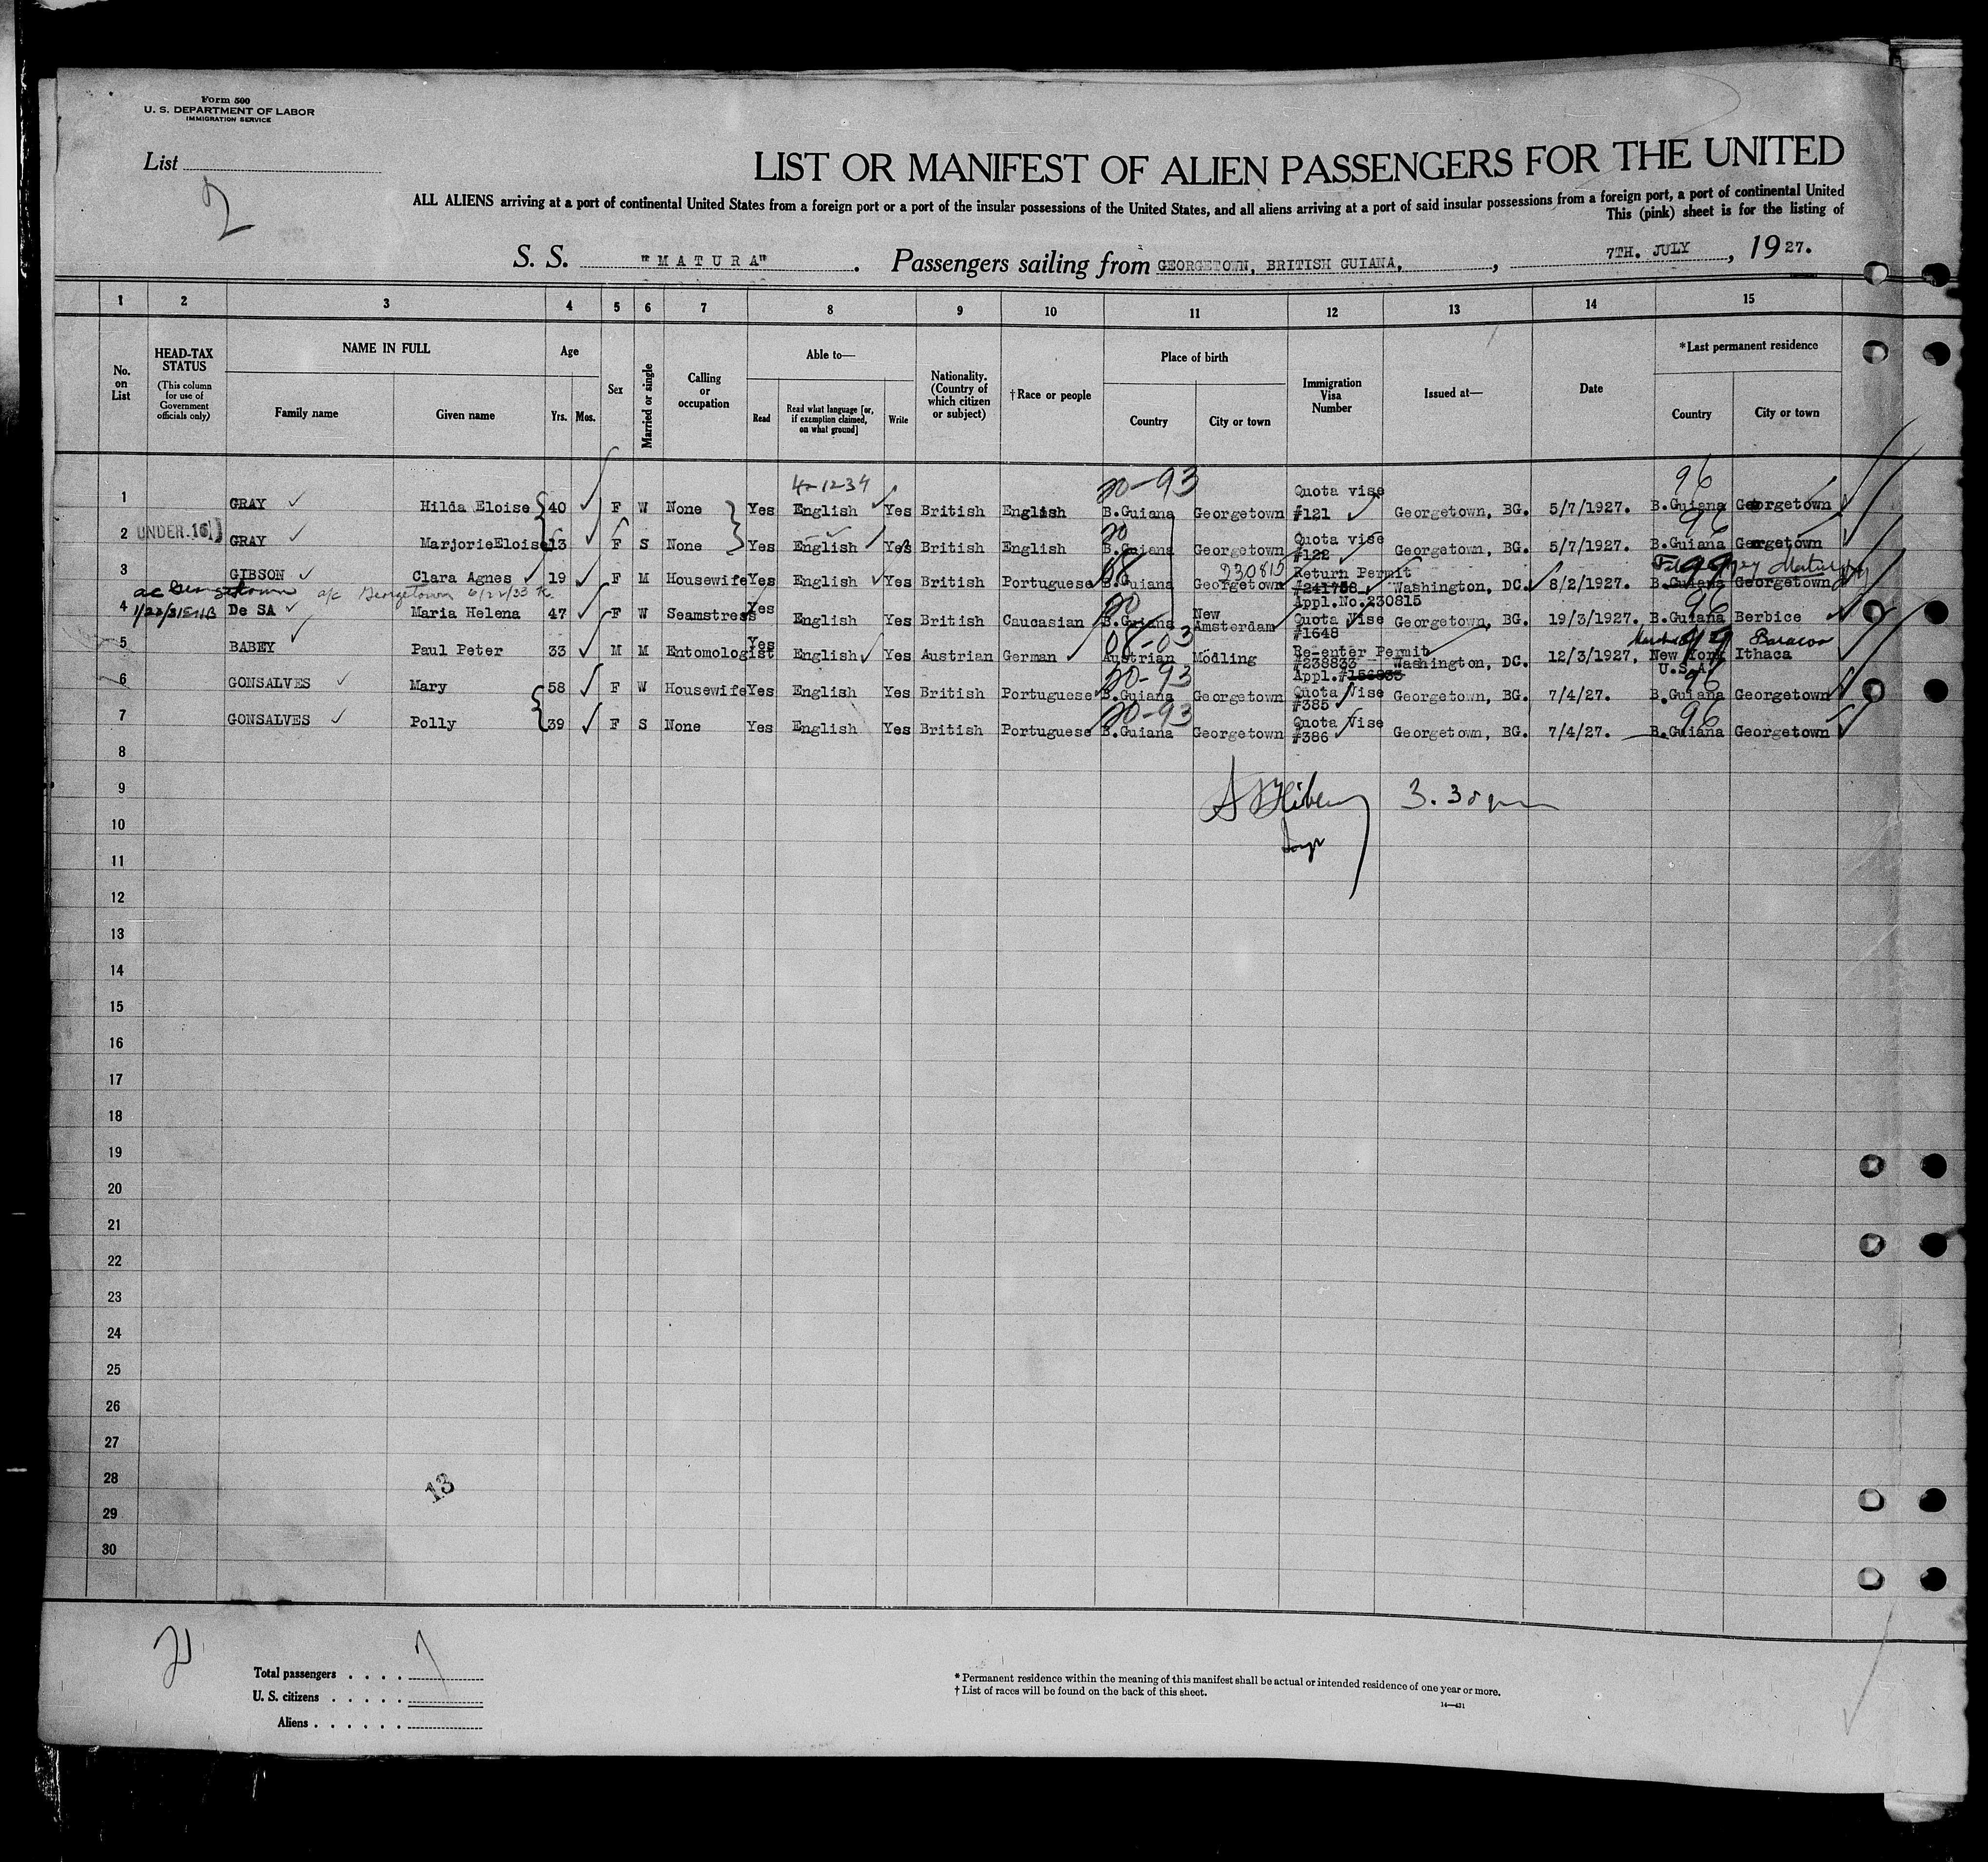 Form 500
U. S. DEPARTMENT OF LABOR
IMMIGRATION SERVICE
List
2
LIST OR MANIFEST OF ALIEN PASSENGERS FOR THE UNITED
ALL ALIENS arriving at a port of continental United States from a foreign port or a port of the insular possessions of the United States, and all aliens arriving at a port of said insular possessions from a foreign port, a port of continental United
This (pink) sheet is for the listing of
S. S. "MATURA". Passengers sailing from GEORGETOWN, BRITISH GUIANA, , 7TH. JULY , 1927.
1 2 3 4 5 6 7 8 9 10 11 12 13 14 15
No. on List
HEAD-TAX STATUS (This column for use of Government officials only)
NAME IN FULL
Family name Given name
Age
Yrs. Mos.
Sex
Married or single
Calling or occupation
Able to—
Read
Read what language [or, if exemption claimed, on what ground]
Write
Nationality. (Country of which citizen or subject)
†Race or people
Place of birth
Country City or town
Immigration Visa Number
Issued at—
Date
*Last permanent residence
Country City or town
4-1234 20-93 96
1 GRAY Hilda Eloise 40 F W None Yes English Yes British English B.Guiana Georgetown Quota vise #121 Georgetown, BG. 5/7/1927. B.Guiana Georgetown
20 96
2 UNDER 16 GRAY MarjorieEloise 13 F S None Yes English Yes British English B.Guiana Georgetown Quota vise #122 Georgetown, BG. 5/7/1927. B.Guiana Georgetown
230815
3 GIBSON Clara Agnes 19 F M Housewife Yes English Yes British Portuguese B.Guiana Georgetown Return Permit #241758 Appl.No.230815 Washington, DC. 8/2/1927. B.Guiana Georgetown
a/c Georgetown a/c Georgetown 6/22/33
20 96
4 De SA Maria Helena 47 F W Seamstress Yes English Yes British Caucasian B.Guiana New Amsterdam Quota Vise #1648 Georgetown, BG. 19/3/1927. B.Guiana Berbice
08-03 99
5 BABEY Paul Peter 33 M M Entomologist Yes English Yes Austrian German Austrian Mödling Re-enter Permit #238833 Appl.#156833 Washington, DC. 12/3/1927, New York U.S.A. Ithaca
20-93 96
6 GONSALVES Mary 58 F W Housewife Yes English Yes British Portuguese B.Guiana Georgetown Quota Vise #385 Georgetown, BG. 7/4/27. B.Guiana Georgetown
20-93 96
7 GONSALVES Polly 39 F S None Yes English Yes British Portuguese B.Guiana Georgetown Quota Vise #386 Georgetown, BG. 7/4/27. B.Guiana Georgetown
8
9
3.30 pm
10
11
12
13
14
15
16
17
18
19
20
21
22
23
24
25
26
27
28
13
29
30
Total passengers . . . . 7
U. S. citizens . . . . .
Aliens . . . . . .
* Permanent residence within the meaning of this manifest shall be actual or intended residence of one year or more.
† List of races will be found on the back of this sheet.
14—431